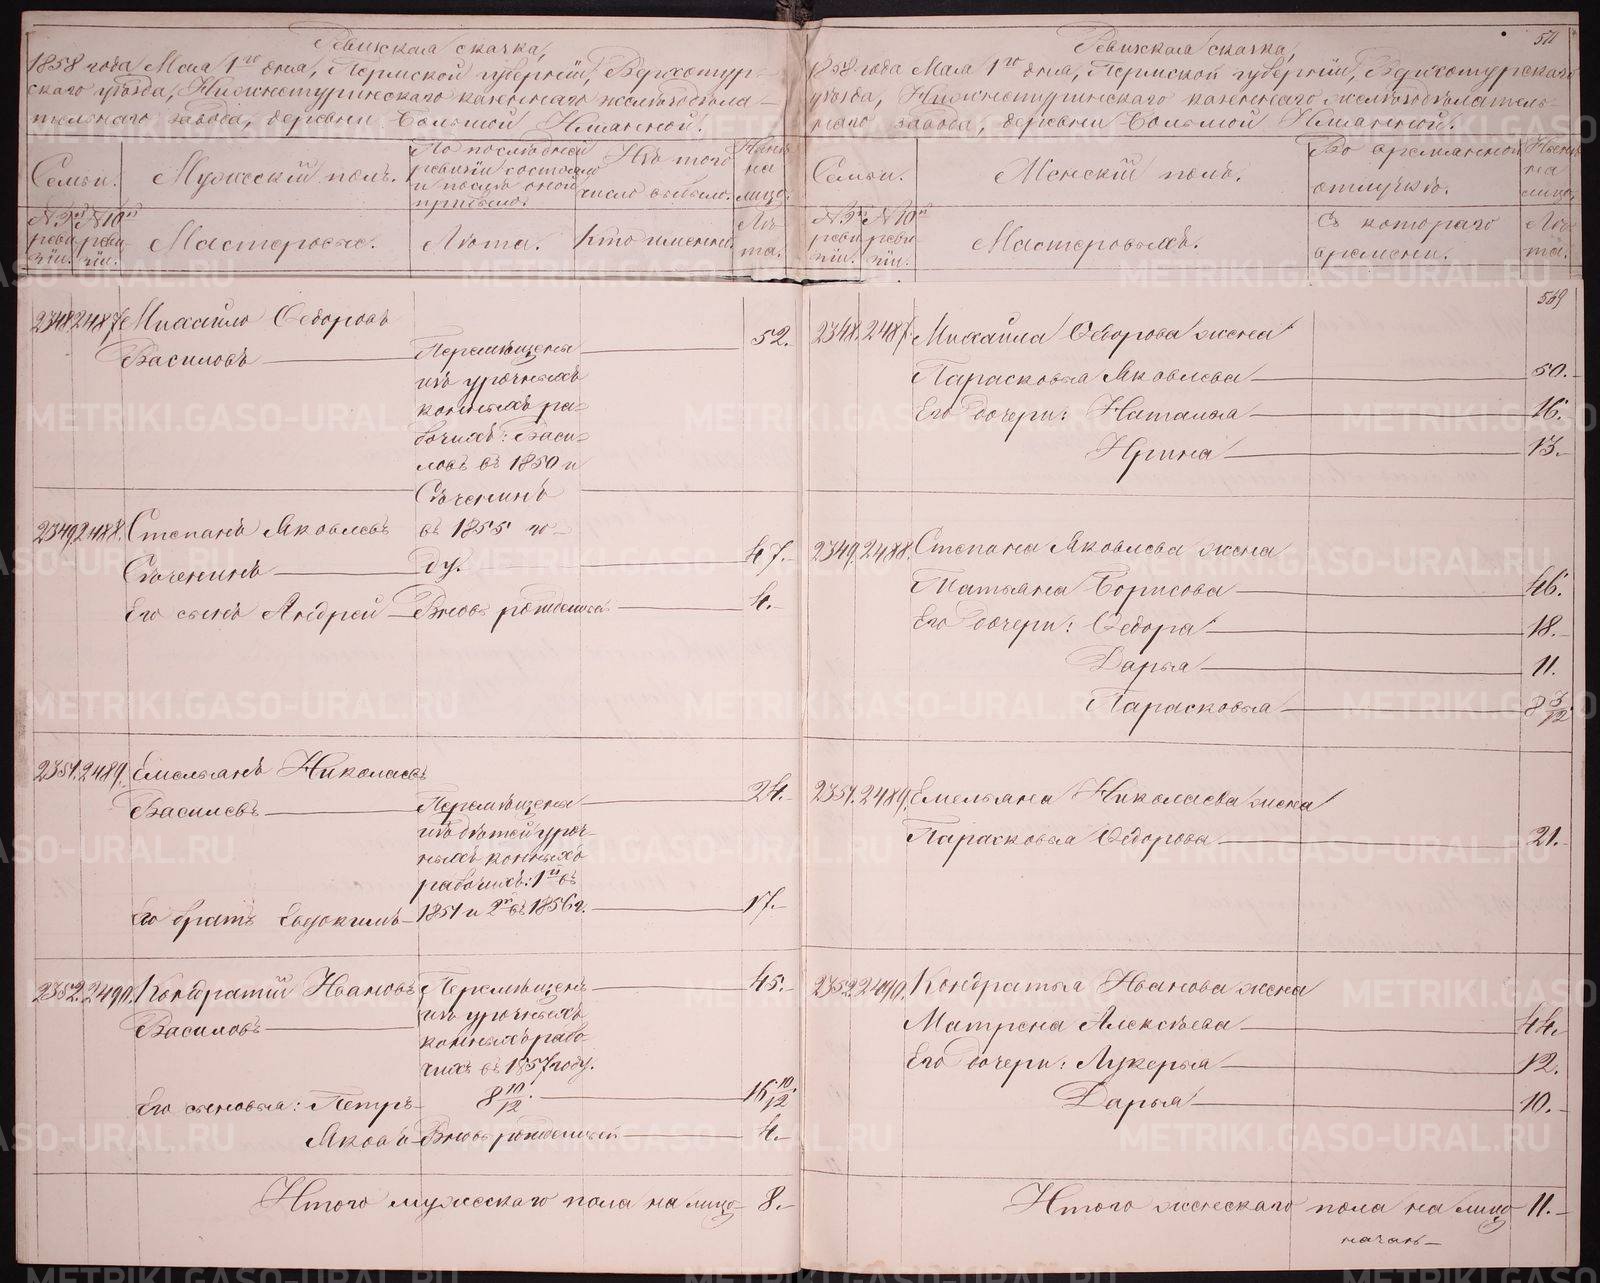 Ревизская сказка,
1858 года Маія 1го дня, Пермской губерніи, Верхотур-
скаго уѣзда, Нижнетуринскаго казеннаго желѣзодѣла-
тельнаго завода, деревни Большой Именной.
Семьи.
Мужескій полъ.
По послѣдней
ревизіи состояло
и послѣ оной
прибыло.
Изъ того
число выбыло.
Нынѣ
на
лицо.
№ 9й
реви
зіи.
№ 10й
реви
зіи.
Мастеровые.
Лѣта.
Кто именно.
Лѣ
та.
2348. 2487. Михайло Ѳедоровъ
Василовъ
Перемѣщены
изъ урочныхъ
конныхъ ра-
бочихъ: Васи-
ловъ въ 1850 и
Сѫченинъ
въ 1855 го-
ду.
52.
2349. 2488. Степанъ Яковлевъ
47.
Его сынъ Андрей Вновь рожденный 4.
2351. 2489. Емельянъ Николаевъ
Василевъ
Перемѣщены
изъ дѣтей уроч-
ныхъ конныхъ
рабочихъ: 1й въ
1851 и 2й въ 1856 г.
24.
Его братъ Евдокимъ 17.
2352. 2490. Кондратій Ивановъ
Василовъ
Перемѣщенъ
изъ урочныхъ
конныхъ рабо-
чихъ въ 1857 году.
45.
Его сыновья: Петръ 8 10/12. 16 10/12.
Яковъ Вновь рожденный 4.
Итого мужескаго пола на лицо 8.
511
Ревизская сказка,
1858 года Маія 1го дня, Пермской губерніи, Верхотурскаго
уѣзда, Нижнетуринскаго казеннаго желѣзодѣлатель-
наго завода, деревни Большой Именной.
Семьи.
Женскій полъ.
Во временной
отлучкѣ.
Нынѣ
на
лицо.
№ 9й
реви
зіи.
№ 10й
реви
зіи.
Мастеровыхъ.
Съ котораго
времени.
Лѣ
та.
569
2348. 2487. Михаила Ѳедорова жена
Парасковья Яковлева 50.
Его дочери: Наталья 16.
Ирина 13.
2349. 2488. Степана Яковлева жена
Татьяна Борисова 46.
Его дочери: Ѳедора 18.
Дарья 11.
Парасковья 8 3/12
2351. 2489. Емельяна Николаева жена
Парасковья Ѳедорова 21.
2352. 2490. Кондратья Иванова жена
Матрена Алексѣева 44.
Его дочери: Лукерья 12.
Дарья 10.
Итого женскаго пола на лицо 11.
METRIKI.GASO-URAL.RU